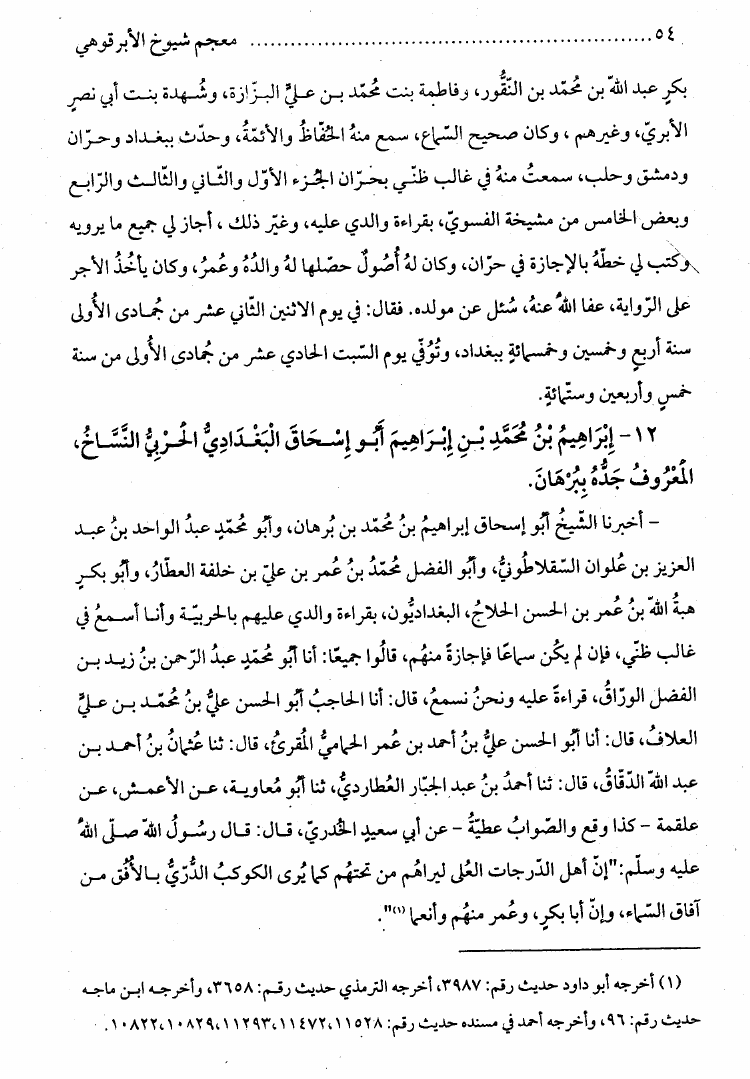 ٥٤ ........................................................ معجم شيوخ الأبرقوهي
بكرٍ عبد اللهّ بن محُمّد بن النّقُّور، وفاطمة بنت محُمّد بن عليّ البزّازة، وشُهدة بنت أبي نصرٍ
الأبريّ، وغيرهم ، وكان صحيح السّماع، سمع منهُ الحُفّاظُ والأئمّةُ، وحدّث ببغداد وحرّان
ودمشق وحلب، سمعتُ منهُ في غالب ظنّي بحرّان الجُزء الأوّل والثّاني والثّالث والرّابع
وبعض الخامس من مشيخة الفسويّ، بقراءة والدي عليه، وغيّر ذلك ، أجاز لي جميع ما يرويه
وكتب لي خطّهُ بالإجازة في حرّان، وكان لهُ أُصُولٌ حصّلها لهُ والدُهُ وعُمرُ، وكان يأخُذُ الأجر
على الرّواية، عفا اللهُّ عنهُ، سُئل عن مولده. فقال: في يوم الاثنين الثّاني عشر من جُمادى الأُولى
سنة أربعٍ وخمسين وخمسمائةٍ ببغداد، وتُوُفّي يوم السّبت الحادي عشر من جُمادى الأُولى من سنة
خمسٍ وأربعين وستّمائةٍ.
١٢- إِبْرَاهِيمُ بْنُ مُحَمَّدِ بْنِ إِبْرَاهِيمَ أَبُو إِسْحَاقَ الْبَغْدَادِيُّ الْحَرْبِيُّ النَّسَّاخُ،
الْمَعْرُوفُ جَدُّهُ بِبُرْهَانَ.
– أخبرنا الشّيخُ أبُو إسحاق إبراهيمُ بنُ محُمّد بن بُرهان، وأبُو محُمّدٍ عبدُ الواحد بنُ عبد
العزيز بن عُلوان السّقلاطُونيُّ، وأبُو الفضل محُمّدُ بنُ عُمر بن عليّ بن خلفة العطّارُ، وأبُو بكرٍ
هبةُ اللهّ بنُ عُمر بن الحسن الحلاجُ، البغداديُّون، بقراءة والدي عليهم بالحربيّة وأنا أسمعُ في
غالب ظنّي، فإن لم يكُن سماعًا فإجازةً منهُم، قالُوا جميعًا: أنا أبُو محُمّدٍ عبدُ الرّحمن بنُ زيد بن
الفضل الورّاقُ، قراءةً عليه ونحنُ نسمعُ، قال: أنا الحاجبُ أبُو الحسن عليُّ بنُ محُمّد بن عليّ
العلافُ، قال: أنا أبُو الحسن عليُّ بنُ أحمد بن عُمر الحماميُّ المُقرئُ، قال: ثنا عُثمانُ بنُ أحمد بن
عبد اللهّ الدّقاقُ، قال: ثنا أحمدُ بنُ عبد الجبّار العُطارديُّ، ثنا أبُو مُعاوية، عن الأعمش، عن
علقمة – كذا وقع والصّوابُ عطيّةُ – عن أبي سعيدٍ الخُدريّ، قال: قال رسُولُ اللهّ صلّى اللهُّ
عليه وسلّم:"إنّ أهل الدّرجات العُلى ليراهُم من تحتهُم كما يُرى الكوكبُ الدُّرّيُّ بالأُفُق من
آفاق السّماء، وإنّ أبا بكرٍ، وعُمر منهُم وأنعما (١)".
(١) أخرجه أبو داود حديث رقم: ٣٩٨٧، أخرجه الترمذي حديث رقم: ٣٦٥٨، وأخرجه ابن ماجه
حديث رقم: ٩٦، وأخرجه أحمد في مسنده حديث رقم: ١١٥٢٨،١١٤٧٢،١١٢٩٣،١٠٨٢٩،١٠٨٢٢.